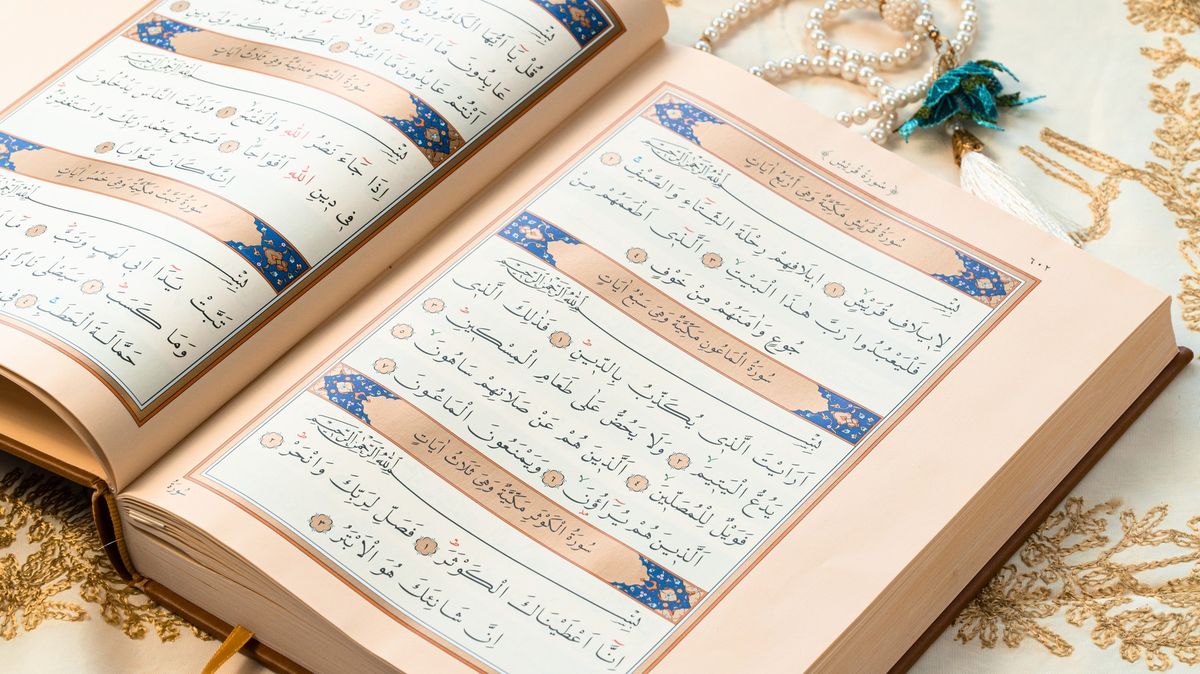 ﴿ سُورَةُ قُرَيْشٍ ﴾ ٦٠٢
سُورَةُ قُرَيْشٍ مَكِّيَّةٌ وَهِىَ أَرْبَعُ اٰيَاتٍ
بِسْمِ اللّٰهِ الرَّحْمٰنِ الرَّحِيمِ
لِاِيلَافِ قُرَيْشٍ ١ اِيلَافِهِمْ رِحْلَةَ الشِّتَٓاءِ وَالصَّيْفِ ٢
فَلْيَعْبُدُوا رَبَّ هٰذَا الْبَيْتِ ٣ اَلَّذِٓى اَطْعَمَهُمْ مِنْ
جُوعٍ وَاٰمَنَهُمْ مِنْ خَوْفٍ ٤
سُورَةُ الْمَاعُونِ مَكِّيَّةٌ وَهِىَ سَبْعُ اٰيَاتٍ
بِسْمِ اللّٰهِ الرَّحْمٰنِ الرَّحِيمِ
اَرَاَيْتَ الَّذِى يُكَذِّبُ بِالدِّينِ ١ فَذٰلِكَ الَّذِى
يَدُعُّ الْيَتِيمَ ٢ وَلَا يَحُضُّ عَلٰى طَعَامِ الْمِسْكِينِ ٣
فَوَيْلٌ لِلْمُصَلِّينَ ٤ اَلَّذِينَ هُمْ عَنْ صَلَاتِهِمْ سَاهُونَ ٥
اَلَّذِينَ هُمْ يُرَٓاؤُنَ ٦ وَيَمْنَعُونَ الْمَاعُونَ ٧
سُورَةُ الْكَوْثَرِ مَكِّيَّةٌ وَهِىَ ثَلَاثُ اٰيَاتٍ
بِسْمِ اللّٰهِ الرَّحْمٰنِ الرَّحِيمِ
اِنَّٓا اَعْطَيْنَاكَ الْكَوْثَرَ ١ فَصَلِّ لِرَبِّكَ وَانْحَرْ ٢
اِنَّ شَانِئَكَ هُوَ الْاَبْتَرُ ٣
سُورَةُ
بِسْمِ
قُلْ يَٓا اَيُّهَا الْكَافِرُونَ
عَابِدُونَ مَٓا اَعْبُدُ ٣ وَلَٓا اَنَا۬
اَنْتُمْ عَابِدُونَ مَٓا اَعْبُدُ ٥ لَكُمْ دِينُكُمْ
سُورَةُ النَّصْرِ مَدَنِيَّةٌ وَهِىَ ثَلَاثُ اٰيَاتٍ
بِسْمِ اللّٰهِ الرَّحْمٰنِ الرَّحِيمِ
اِذَا جَٓاءَ نَصْرُ اللّٰهِ وَالْفَتْحُ ١ وَرَاَيْتَ النَّاسَ يَدْخُلُونَ
فِى دِينِ اللّٰهِ اَفْوَاجًا ٢ فَسَبِّحْ بِحَمْدِ رَبِّكَ وَاسْتَغْفِرْهُ
اِنَّهُ كَانَ تَوَّابًا ٣
سُورَةُ تَبَّتْ مَكِّيَّةٌ وَهِىَ خَمْسُ اٰيَاتٍ
بِسْمِ اللّٰهِ الرَّحْمٰنِ الرَّحِيمِ
تَبَّتْ يَدَٓا اَبِى لَهَبٍ وَتَبَّ ١
وَمَا كَسَبَ ٢ سَيَصْلٰى نَارًا
حَمَّالَةَ الْحَطَبِ ٤